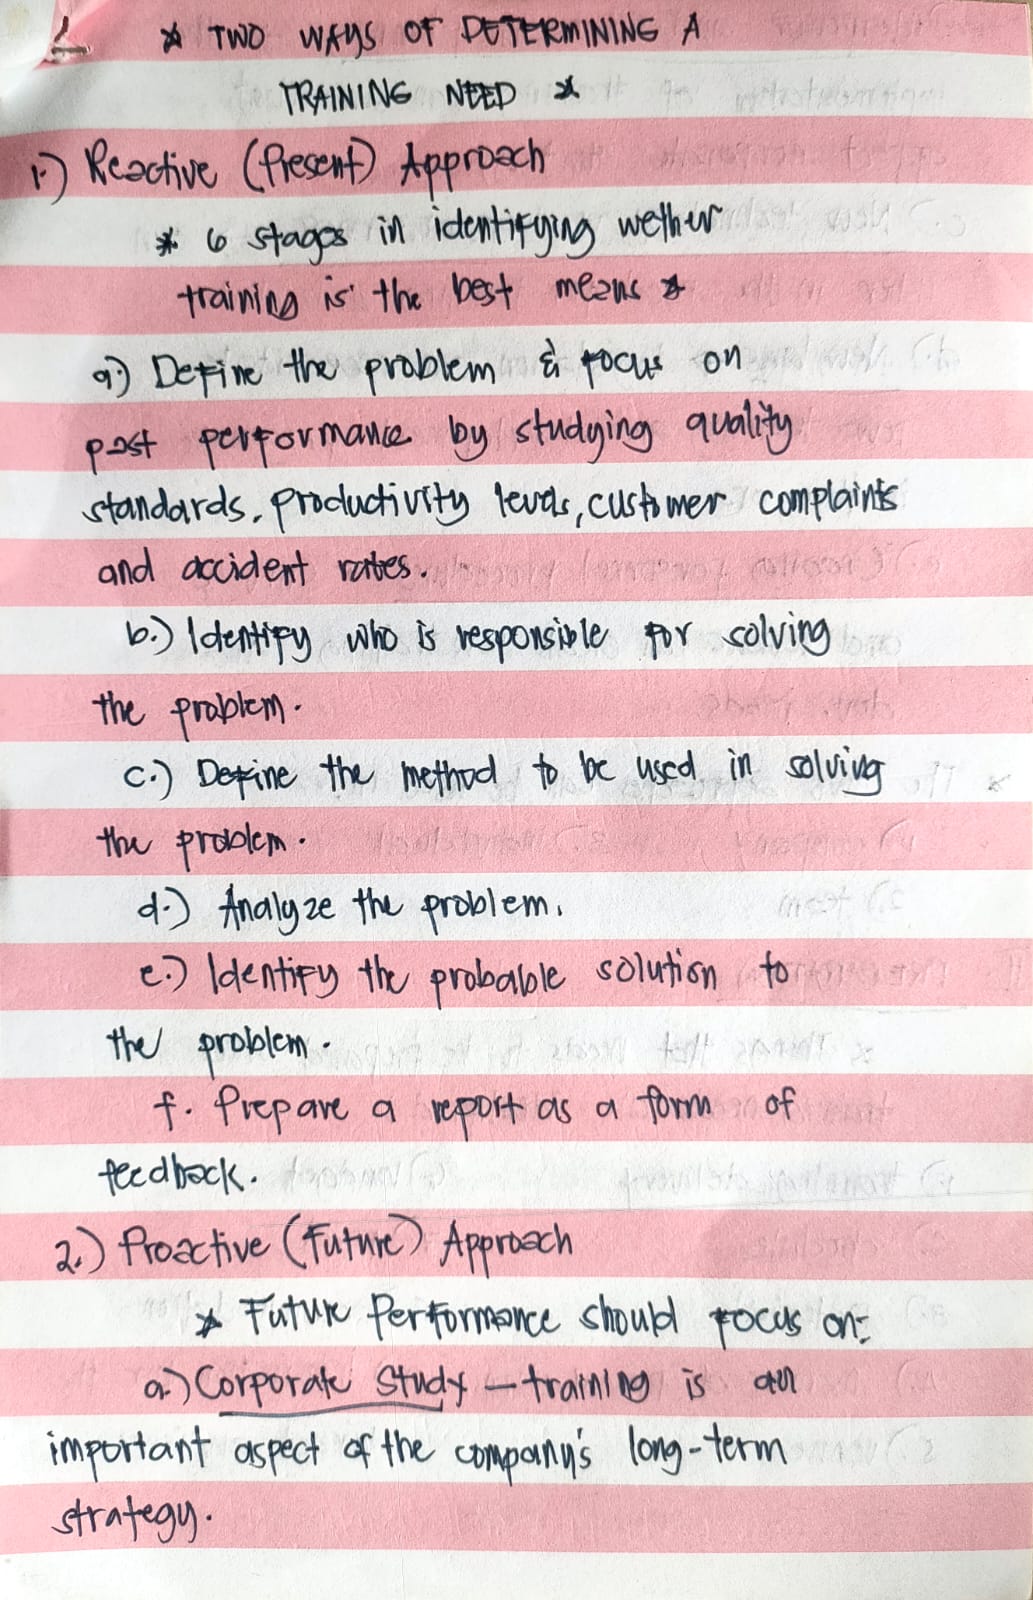 * TWO WAYS OF DETERMINING A
TRAINING NEED *
1.) Reactive (Present) Approach
* 6 stages in identifying wether
training is the best means *
a.) Define the problem & focus on
past performance by studying quality
standards, productivity levels, customer complaints
and accident rates.
b.) Identify who is responsible for solving
the problem.
c.) Define the method to be used in solving
the problem.
d.) Analyze the problem.
e.) Identify the probable solution to
the problem.
f. Prepare a report as a form of
feedback.
2.) Proactive (Future) Approach
* Future Performance should focus on:
a.) Corporate Study - training is an
important aspect of the company's long-term
strategy.